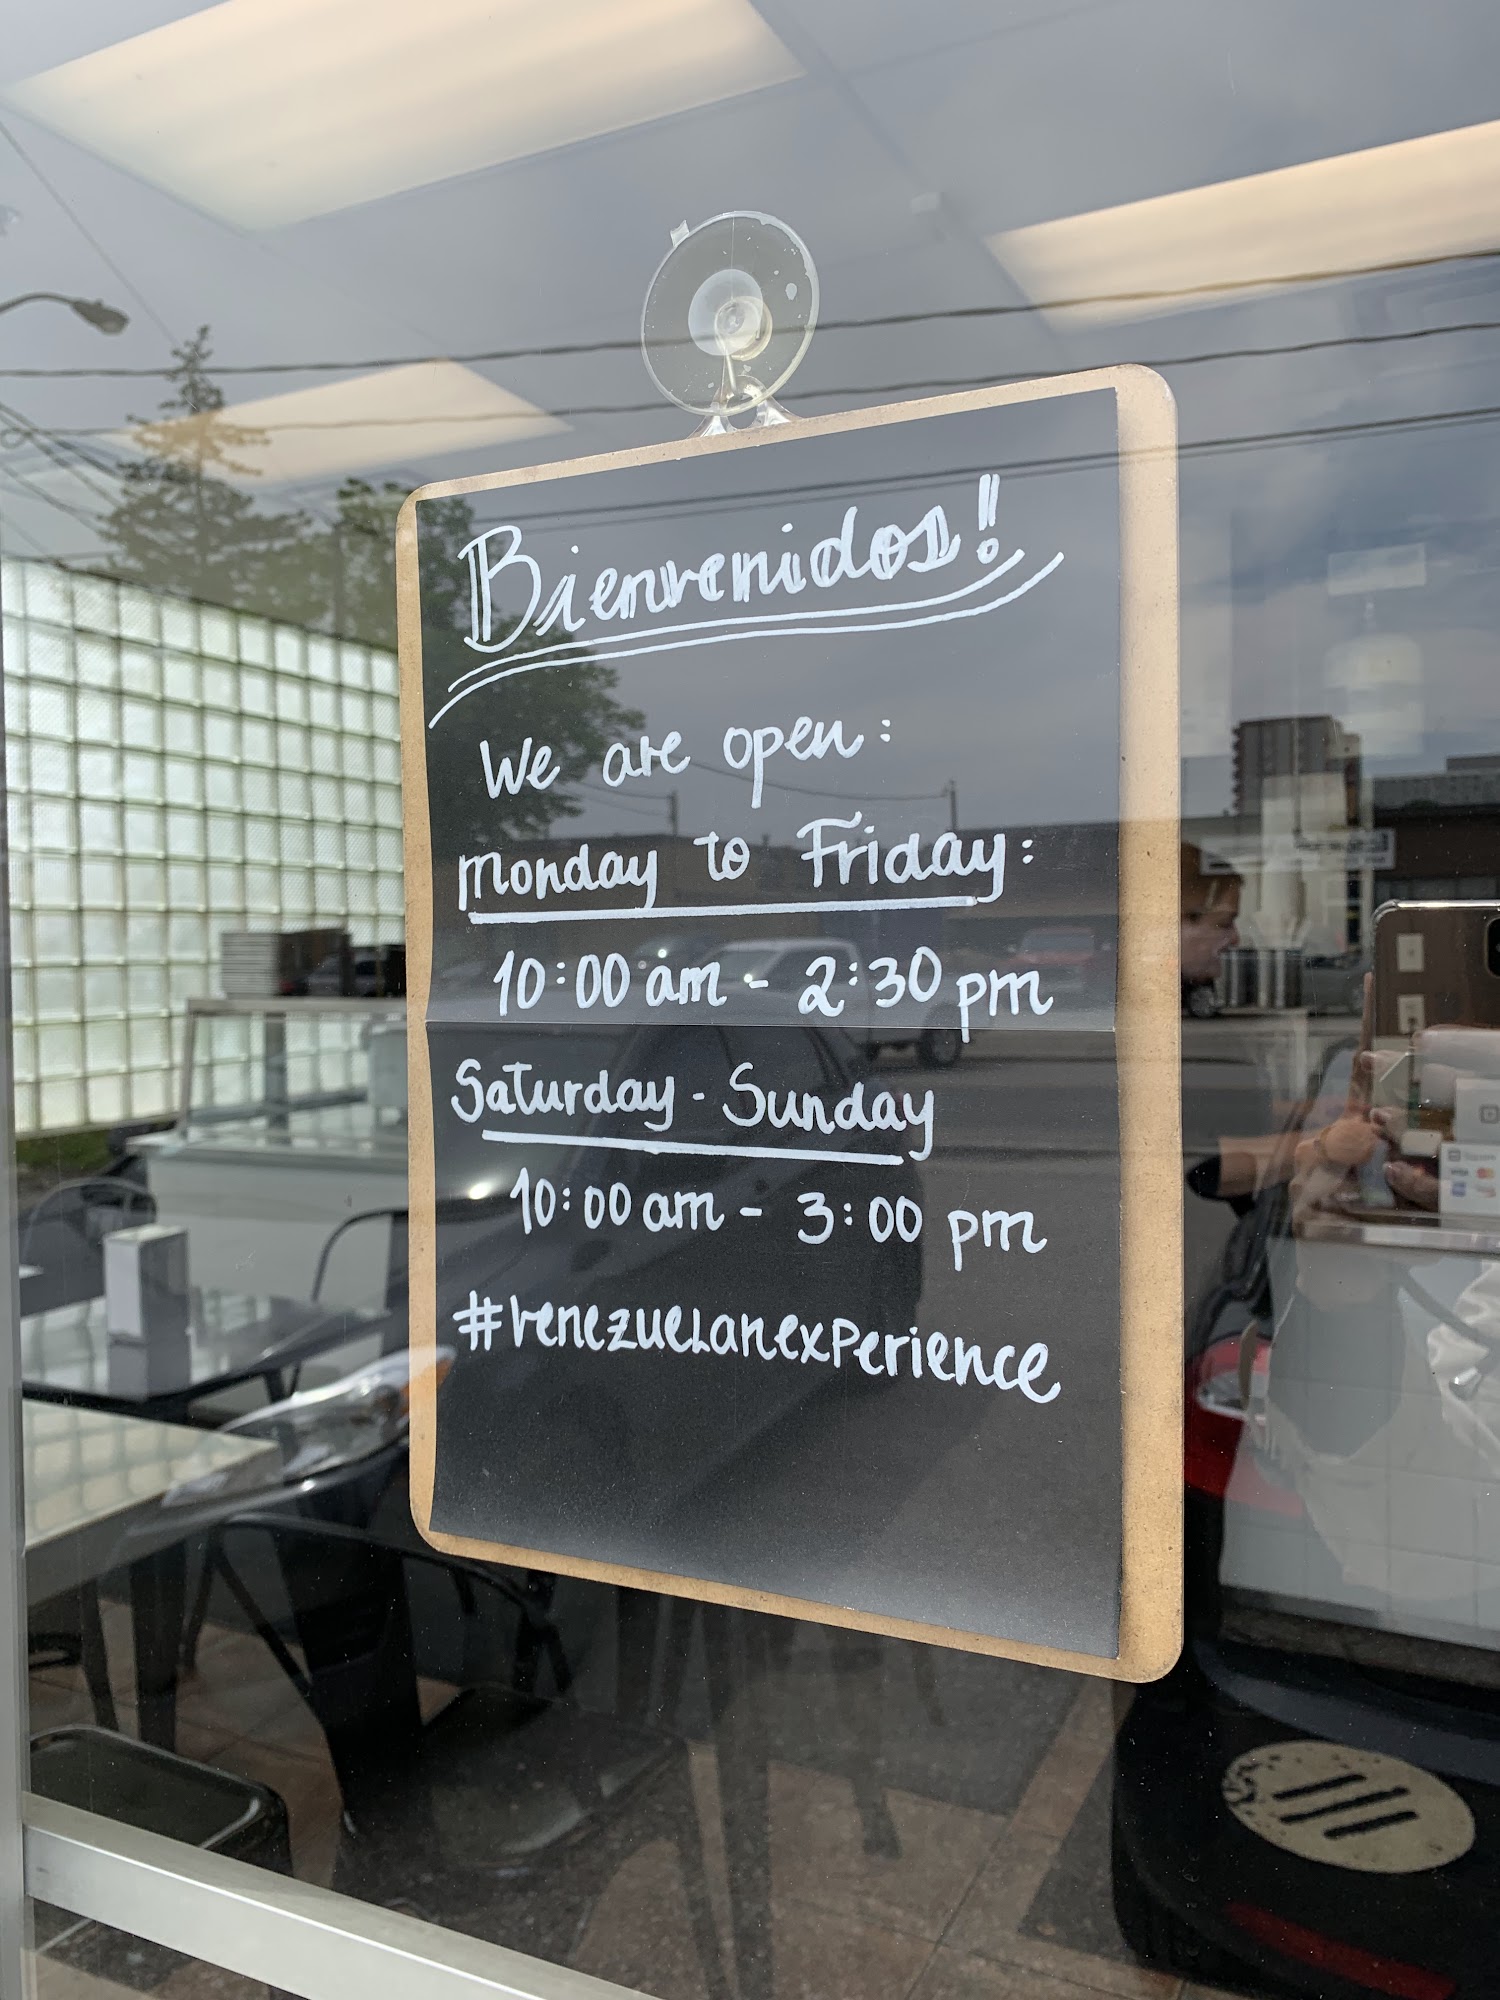 Bienvenidos!
We are open:
Monday to Friday:
10:00 am - 2:30 pm
Saturday - Sunday
10:00 am - 3:00 pm
#venezuelanexperience